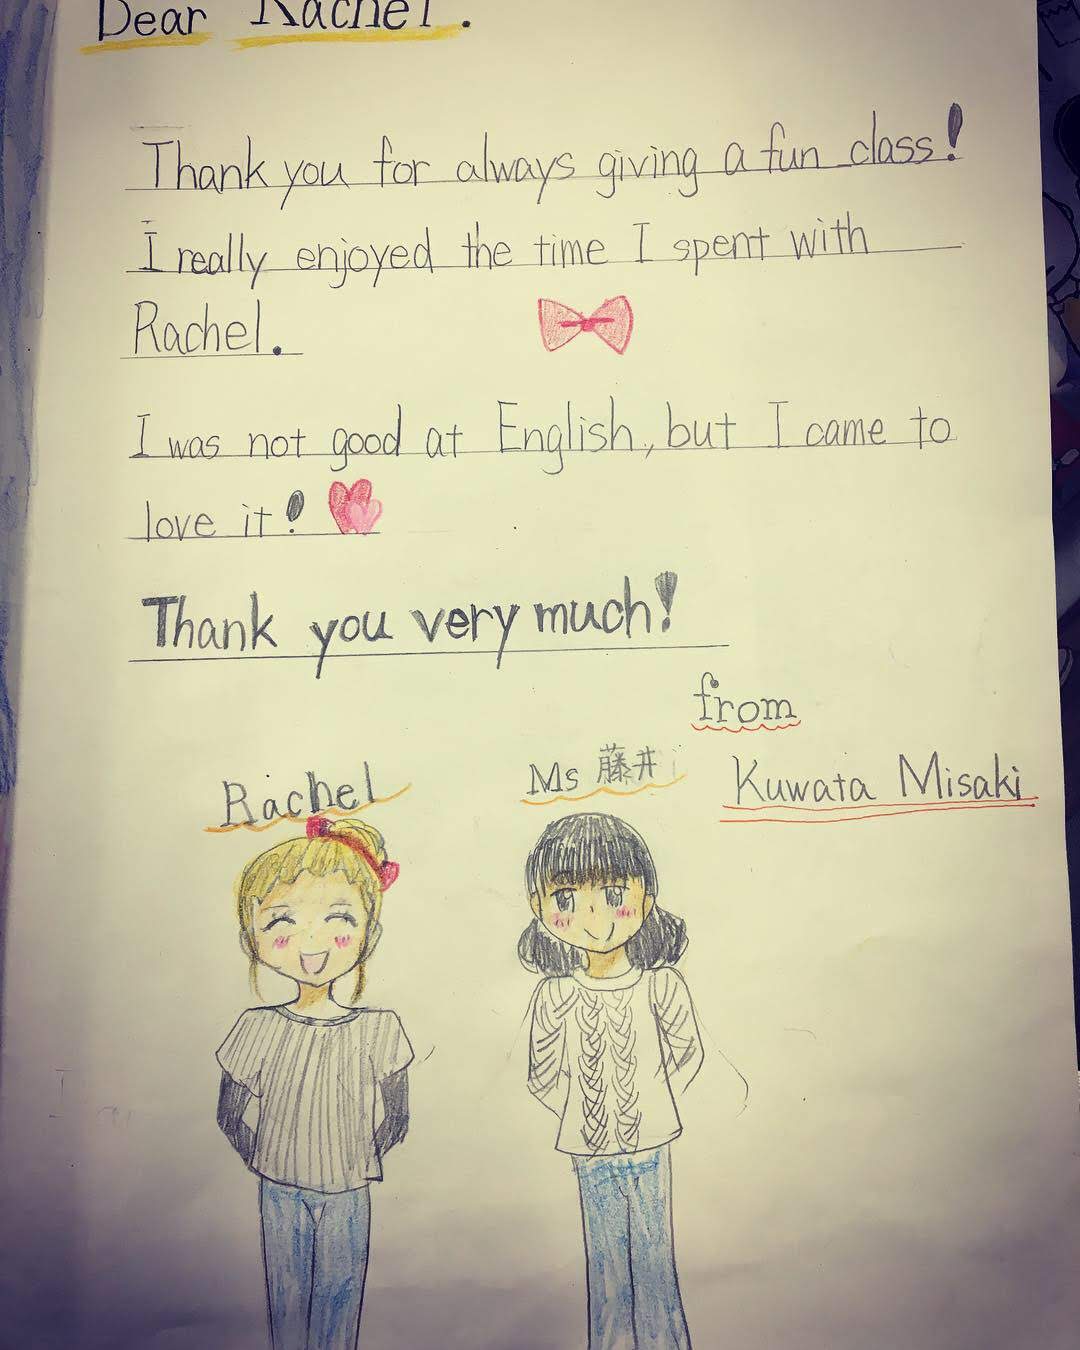 Dear Rachel.
Thank you for always giving a fun class!
I really enjoyed the time I spent with
Rachel.
I was not good at English, but I came to
love it!
Thank you very much!
from
Kuwata Misaki
Rachel
Ms 藤井